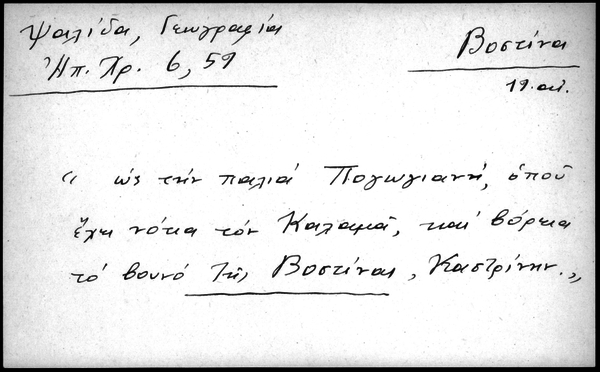 Ψαλίδα, Γεωγραφία
Ἠπ. Χρ. 6, 59
Βοστίνα
19. αι.
“ ὡς τὴν παλιά Πογωγιανή, ὁποῦ
ἔχει νότια τόν Καλαμᾶ, καί βόρεια
τό βουνό τῆς Βοστίνας, Καστρίνην.„